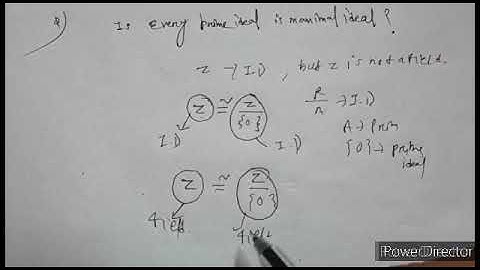 Q) Is every prime ideal is maximal ideal?
Z → I.D , but Z is not a field.
Z ≅ Z/{0}
I.D I.D
R/A → I.D
A → Prim
{0} → prime ideal
Z ≅ Z/{0}
field field
PowerDirector